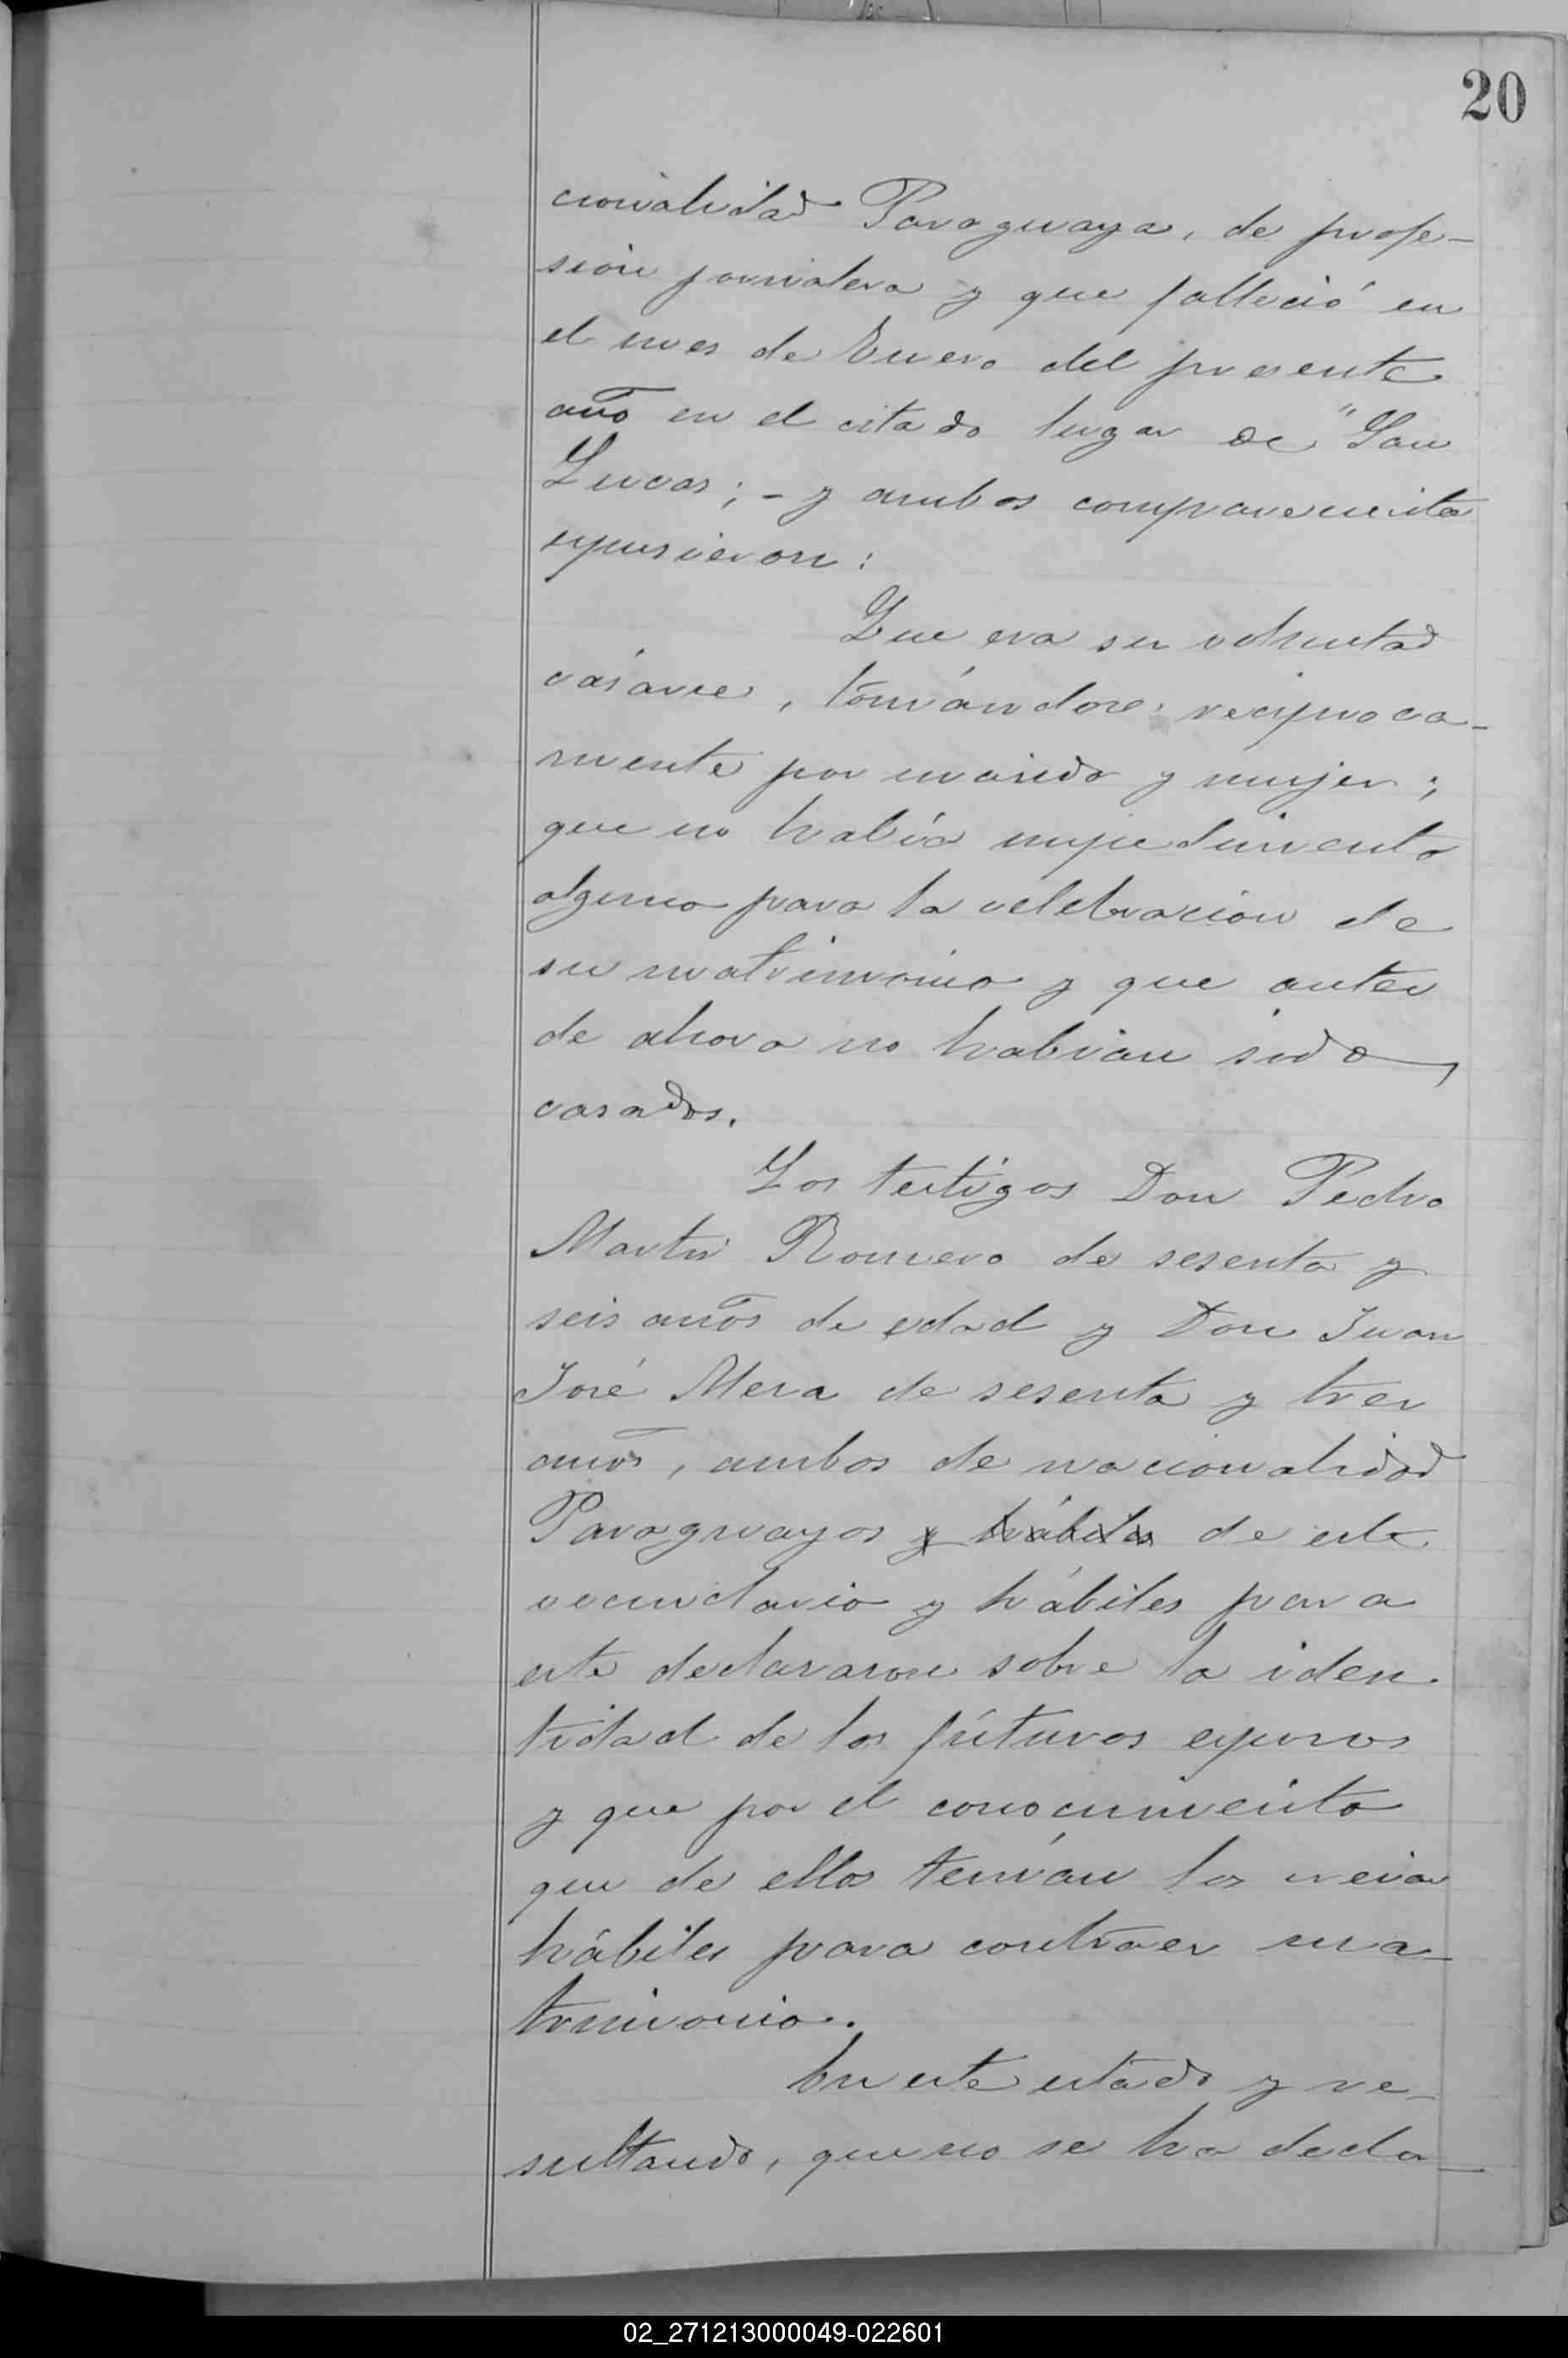 20
cionalidad Paraguaya, de profe-
sión jornalera y que falleció en
el mes de Enero del presente
año en el citado lugar de "San
Lucas; - y ambos compareciente
expusieron:
Que era su voluntad
casarce, tomándose reciproca-
mente por marido y mujer;
que no había impedimento
alguno para la celebracion de
su matrimonio y que antes
de ahora no habian sido
casados.
Los testigos Don Pedro
Martir Romero de sesenta y
seis años de edad y Don Juan
José Mesa de sesenta y tres
años, ambos de nacionalidad
Paraguayos y hábiles de este
vecindario y hábiles para
este declararon sobre la iden
tidad de los fúturos esposos
y que por el conocimiento
que de ellos tenían los creian
hábiles para contraer ma-
trimonio.
En este estado y re-
sultando, que no se ha decla-
02_271213000049-022601